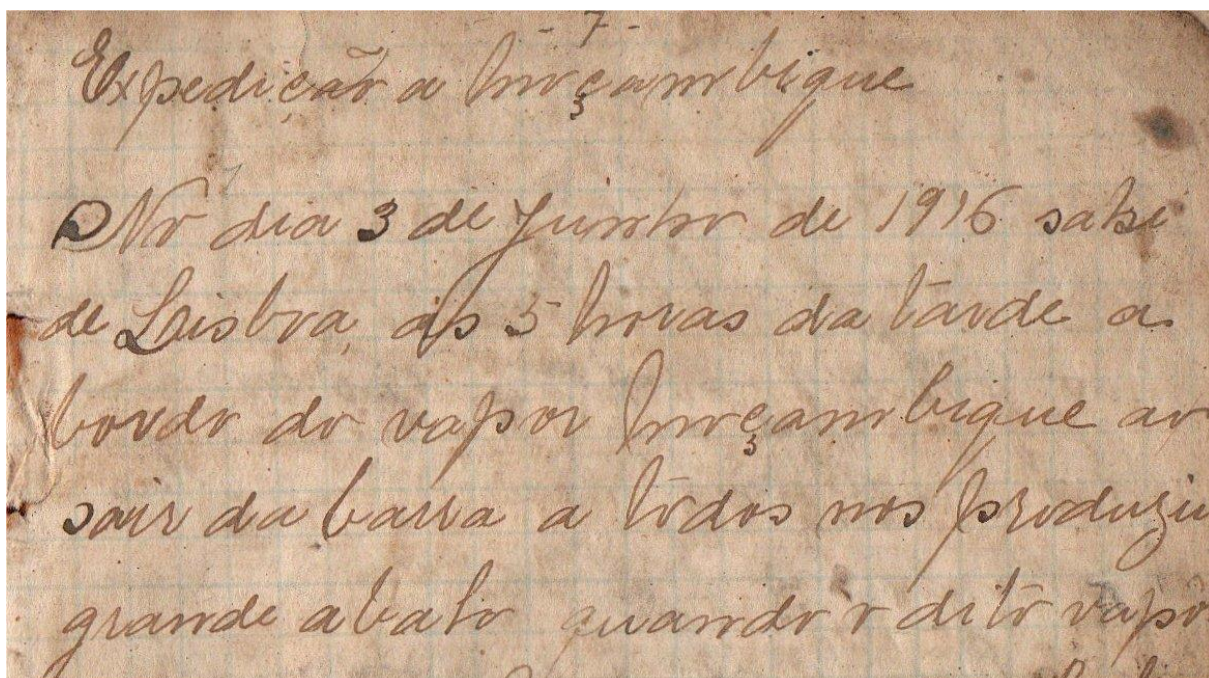 - 7 -
Expedição a Moçambique
No dia 3 de Junho de 1916 sahi
de Loisboa, ás 5 horas da tarde a
bordo do vapor Moçambique ao
sair da barra a todos nos produziu
grande abalo quando o dito vapor